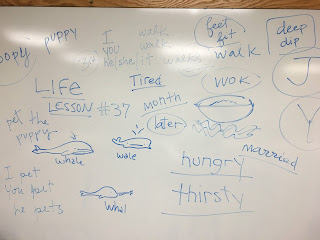 poopy puppy
I walk
you walk
he/she it walks
feet
fat
walk
deep
dip
LIFE
LESSON #37
Tired
wok
month
later
pet the
puppy
whale
wale
hungry
married
thirsty
I pet
You pet
he pets
Whal
J
Y